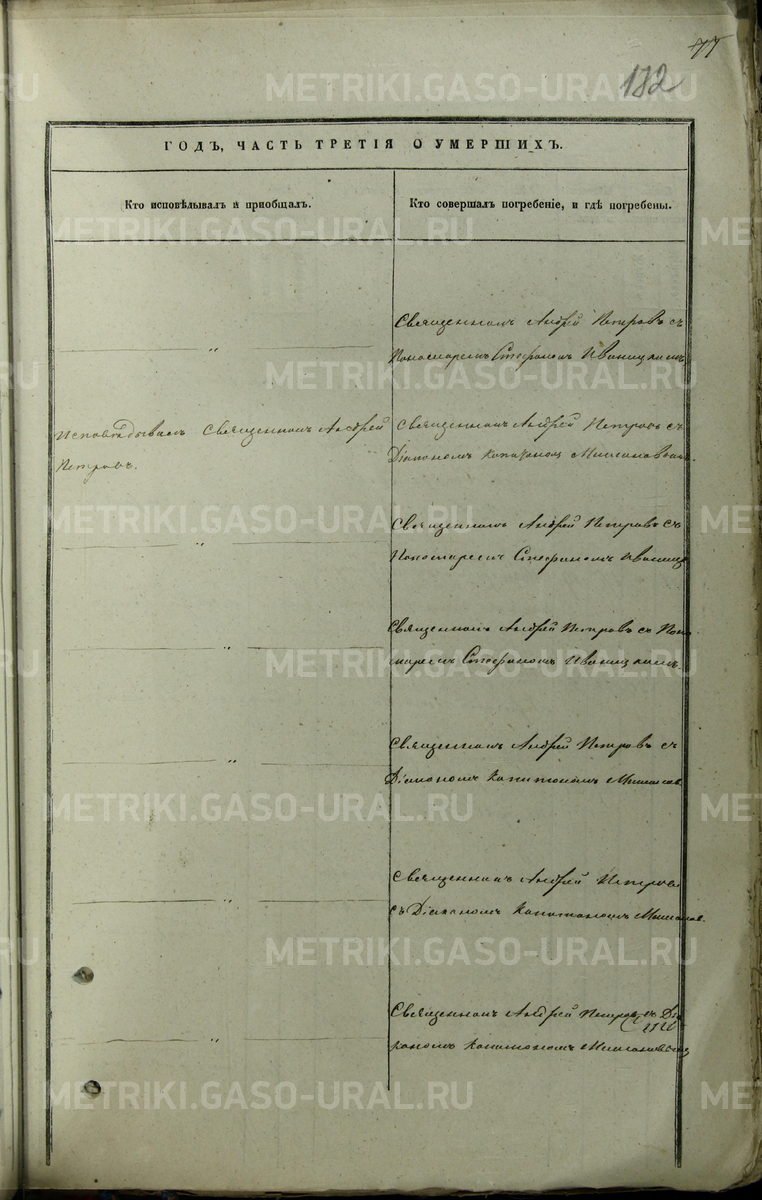 77
182
ГОДЪ, ЧАСТЬ ТРЕТІЯ О УМЕРШИХЪ.
Кто исповѣдывалъ и пріобщалъ.
Кто совершалъ погребеніе, и гдѣ погребены.
Священникъ Андрей Петровъ съ
Пономаремъ Стефаномъ Иваницкимъ
„
Исповѣдывалъ Священникъ Андрей
Петровъ.
Священникъ Андрей Петровъ съ
Діакономъ
Священникъ Андрей Петровъ съ
Пономаремъ Стефаномъ Иваниц
„
Священникъ Андрей Петровъ съ Поно
маремъ Стефаномъ Иваницкимъ.
„
Священникъ Андрей Петровъ съ
Діакономъ Капитономъ
„
Священникъ Андрей Петровъ
съ Діакономъ Капитономъ
„
Священникъ Андрей Петровъ съ Діа
кономъ Капитономъ
„
METRIKI.GASO-URAL.RU